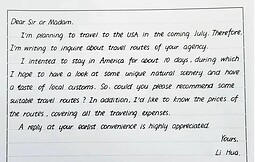 Dear Sir or Madam,
I'm planning to travel to the USA in the coming July. Therefore,
I'm writing to inquire about travel routes of your agency.
I intended to stay in America for about 10 days, during which
I hope to have a look at some unique natural scenery and have
a taste of local customs. So, could you please recommend some
suitable travel routes? In addition, I'd like to know the prices of
the routes, covering all the traveling expenses.
A reply at your earliest convenience is highly appreciated.
Yours,
Li Hua.